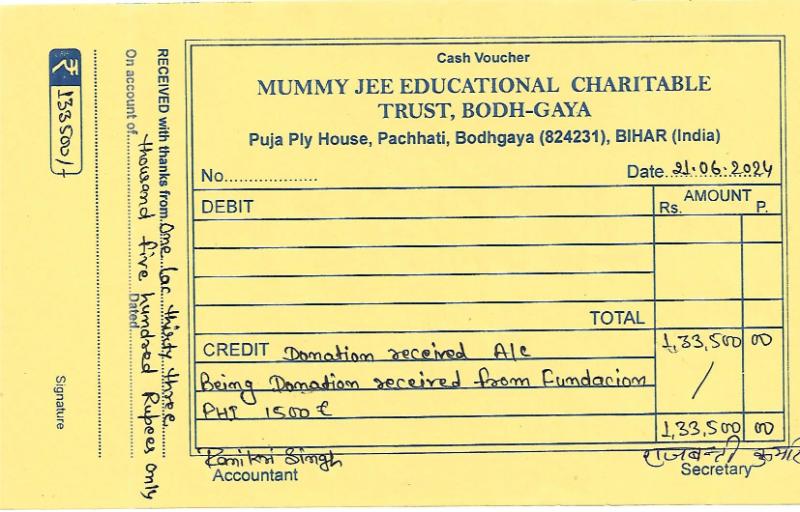 Cash Voucher
MUMMY JEE EDUCATIONAL CHARITABLE
TRUST, BODH-GAYA
Puja Ply House, Pachhati, Bodhgaya (824231), BIHAR (India)
No................... Date 21.06.2024
DEBIT AMOUNT
Rs. P.
TOTAL
CREDIT Donation received A/c 1,33,500 00
Being Donation received from Fundacion
PHI 1500 €
1,33,500 00
Singh राजबन्ती कुमारी
Accountant Secretary
RECEIVED with thanks from One lac thirty three
thousand five hundred Rupees only
On account of Dated
₹ 133500/-
Signature